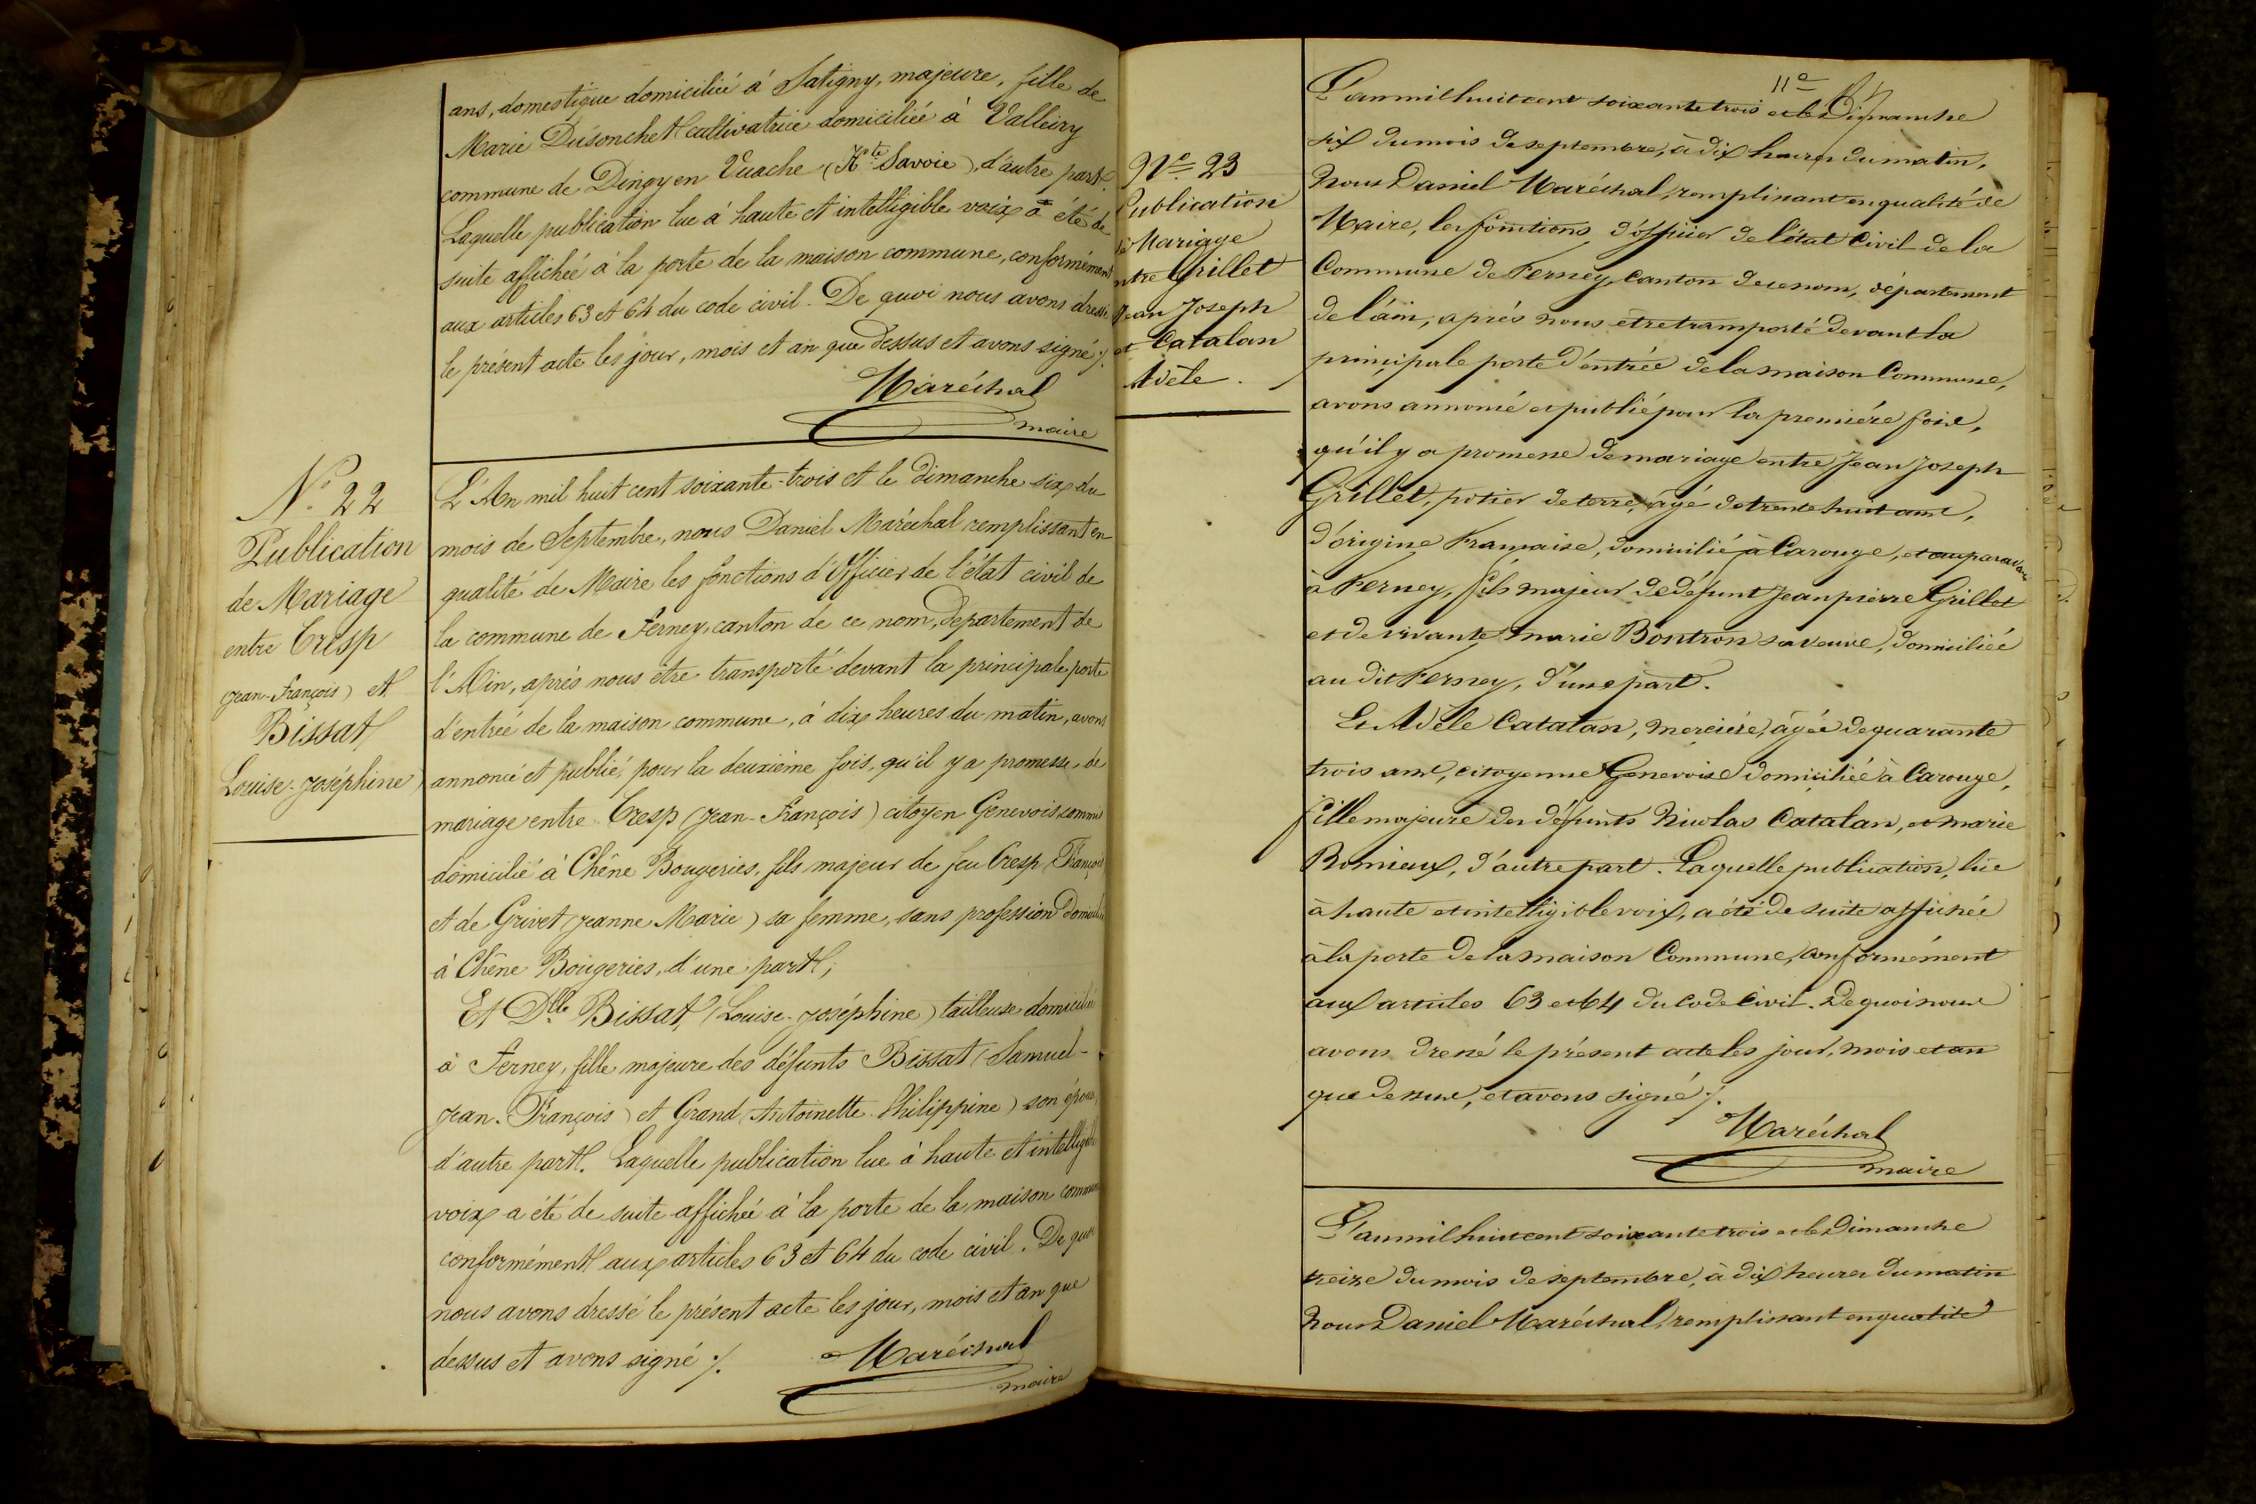 ans, domestique domiciliée à Satigny, majeure, fille de
Marie Dusonchet cultivatrice domiciliée à Valleiry
commune de Dingy en Vuache (Hte Savoie), d'autre part.
Laquelle publication lue à haute et intelligible voix a été de
suite affichée à la porte de la maison commune, conformément
aux articles 63 et 64 du code civil. De quoi nous avons dressé
le présent acte les jour, mois et an que dessus et avons signé ./.
Maréchal
maire
N° 22
Publication
de Mariage
entre Cresp
(Jean-François) et
Bissat
Louise-Joséphine
L'An mil huit cent soixante-trois et le dimanche six du
mois de Septembre, nous Daniel Maréchal remplissant en
qualité de Maire les fonctions d'Officier de l'état civil de
la commune de Ferney, canton de ce nom, département de
l'Ain, après nous être transporté devant la principale porte
d'entrée de la maison commune, à dix heures du matin, avons
annoncé et publié, pour la deuxième fois, qu'il y a promesse de
mariage entre Cresp (Jean-François) citoyen Genevois commis
domicilié à Chêne Bougeries, fils majeur de feu Cresp (François
et de Grivet (Jeanne Marie) sa femme, sans profession domiciliée
à Chêne Bougeries, d'une part;
Et Dlle Bissat (Louise-Joséphine) tailleuse domiciliée
à Ferney, fille majeure des défunts Bissat (Samuel-
Jean-François) et Grand (Antoinette Philippine) son épouse,
d'autre part. Laquelle publication lue à haute et intelligible
voix a été de suite affichée à la porte de la maison commune
conformément aux articles 63 et 64 du code civil. De quoi
nous avons dressé le présent acte les jour, mois et an que
dessus et avons signé ./.
Maréchal
maire
N° 23
Publication
de Mariage
entre Grillet
Jean Joseph
et Catalan
Adèle.
11e
L'an mil huit cent soixante trois et le Dimanche
six du mois de septembre, à dix heures du matin,
Nous Daniel Maréchal, remplissant en qualité de
Maire, les fonctions d'officier de l'état Civil de la
Commune de Ferney, Canton de ce nom, département
de l'ain, après nous être transporté devant la
principale porte d'entrée de la maison Commune,
avons annoncé et publié pour la première fois,
qu'il y a promesse de mariage entre Jean Joseph
Grillet, potier de terre, âgé de trente huit ans,
d'origine Française, domicilié à Carouge, et auparavant
à Ferney, fils majeur de défunt Jean pierre Grillet
et de vivante marie Bontron sa veuve, domiciliée
au dit Ferney, d'une part.
Et Adèle Catalan, mercière, âgée de quarante
trois ans, citoyenne Genevoise domiciliée à Carouge,
fille majeure des défunts Nicolas Catalan, et marie
Romieux, d'autre part. Laquelle publication, lue
à haute et intelligible voix, a été de suite affichée
à la porte de la maison Commune, conformément
aux articles 63 et 64 du Code Civil. De quoi nous
avons dressé le présent acte les jour, mois et an
que dessus, et avons signé ./.
Maréchal
maire
L'an mil huit cent soixante trois et le Dimanche
treize du mois de septembre, à dix heures du matin
Nous Daniel Maréchal, remplissant en qualité